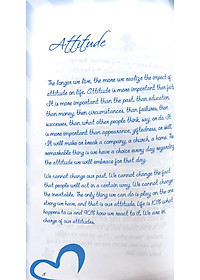 Attitude
The longer we live, the more we realize the impact of
attitude on life. Attitude is more important than fact.
It is more important than the past, education,
than money, than circumstances, than failures, than
successes, than what other people think, say, or do. It
is more important than appearance, giftedness, or skill.
It will make or break a company, a church, a home. The
remarkable thing is we have a choice every day regarding
the attitude we will embrace for that day.
We cannot change our past. We cannot change the fact
that people will act in a certain way. We cannot change
the inevitable. The only thing we can do is play on the one
string we have, and that is our attitude. Life is 10% what
happens to us and 90% how we react to it. We are in
charge of our attitudes.